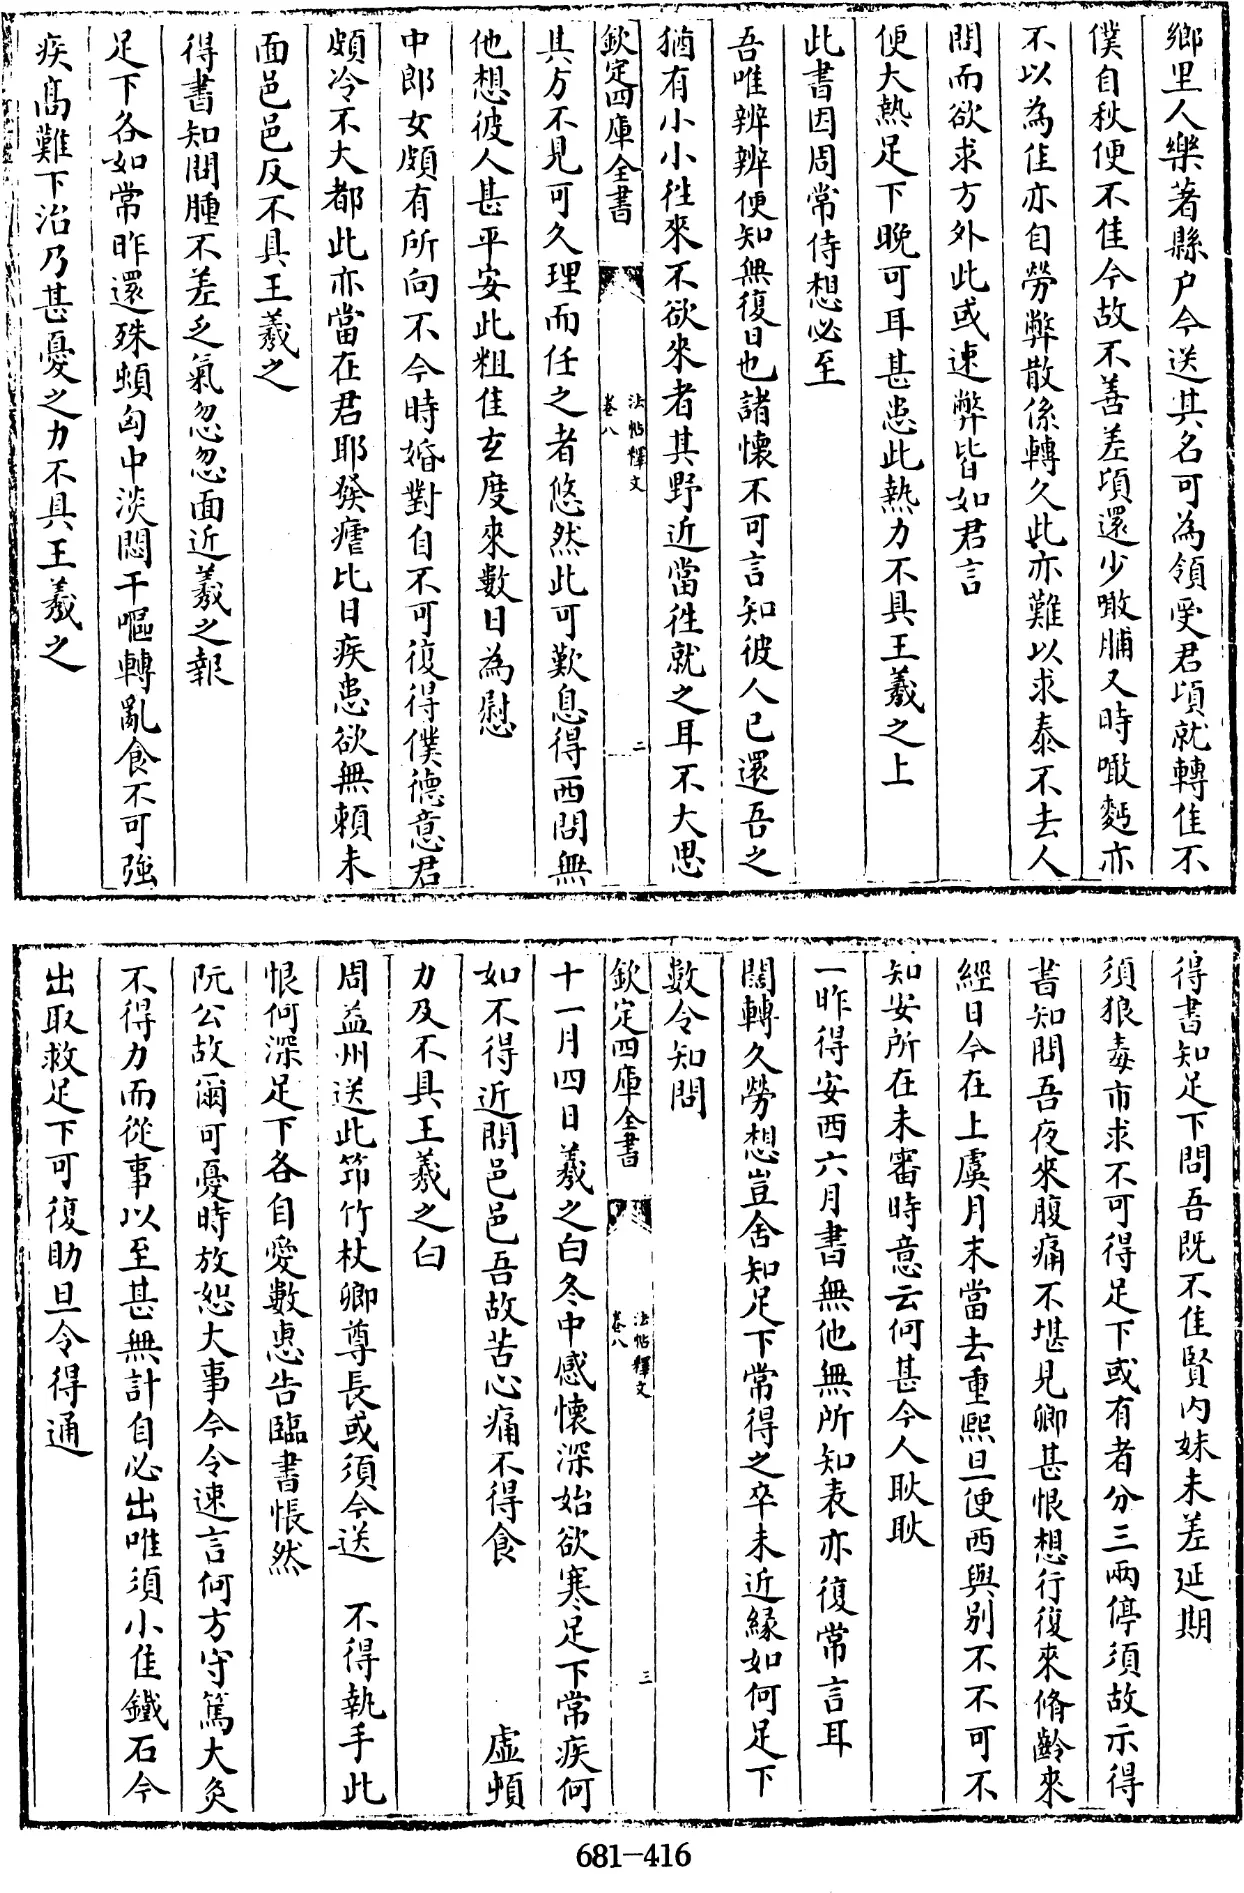 鄉里人樂著縣户今送其名可為領受君頃就轉佳不
僕自秋便不佳今故不善差頃還少噉脯又時噉麪亦
不以為佳亦自勞弊散係轉久此亦難以求泰不去人
間而欲求方外此或速弊皆如君言
便大熱足下晚可耳甚患此熱力不具王羲之上
此書因周常侍想必至
吾唯辨辨便知無復日也諸懷不可言知彼人已還吾之
猶有小小往來不欲來者其野近當往就之耳不大思
欽定四庫全書
法帖釋文
卷八
二
其方不見可久理而任之者悠然此可歎息得西問無
他想彼人甚平安此粗佳玄度來數日為慰
中郎女頗有所向不今時婚對自不可復得僕德意君
頗冷不大都此亦當在君耶發瘧比日疾患欲無賴未
面邑邑反不具王羲之
得書知問腫不差乏氣忽忽面近羲之報
足下各如常昨還殊頓匈中淡悶干嘔轉亂食不可強
疾高難下治乃甚憂之力不具王羲之
得書知足下問吾既不佳賢内妹未差延期
須狼毒市求不可得足下或有者分三兩停須故示得
書知問吾夜來腹痛不堪見卿甚恨想行復來脩齡來
經日今在上虞月末當去重熙旦便西與别不不可不
知安所在未審時意云何甚今人耿耿
一昨得安西六月書無他無所知表亦復常言耳
闊轉久勞想豈舍知足下常得之卒未近緣如何足下
數令知問
欽定四庫全書
法帖釋文
卷八
三
十一月四日羲之白冬中感懷深始欲寒足下常疾何
如不得近問邑邑吾故苦心痛不得食　虚頓
力及不具王羲之白
周益州送此笻竹杖卿尊長或須今送　不得執手此
恨何深足下各自愛數惠告臨書悵然
阮公故爾可憂時放恕大事今令速言何方守篤大灸
不得力而從事以至甚無計自必出唯須小佳鐵石今
出取救足下可復助旦令得通
681-416